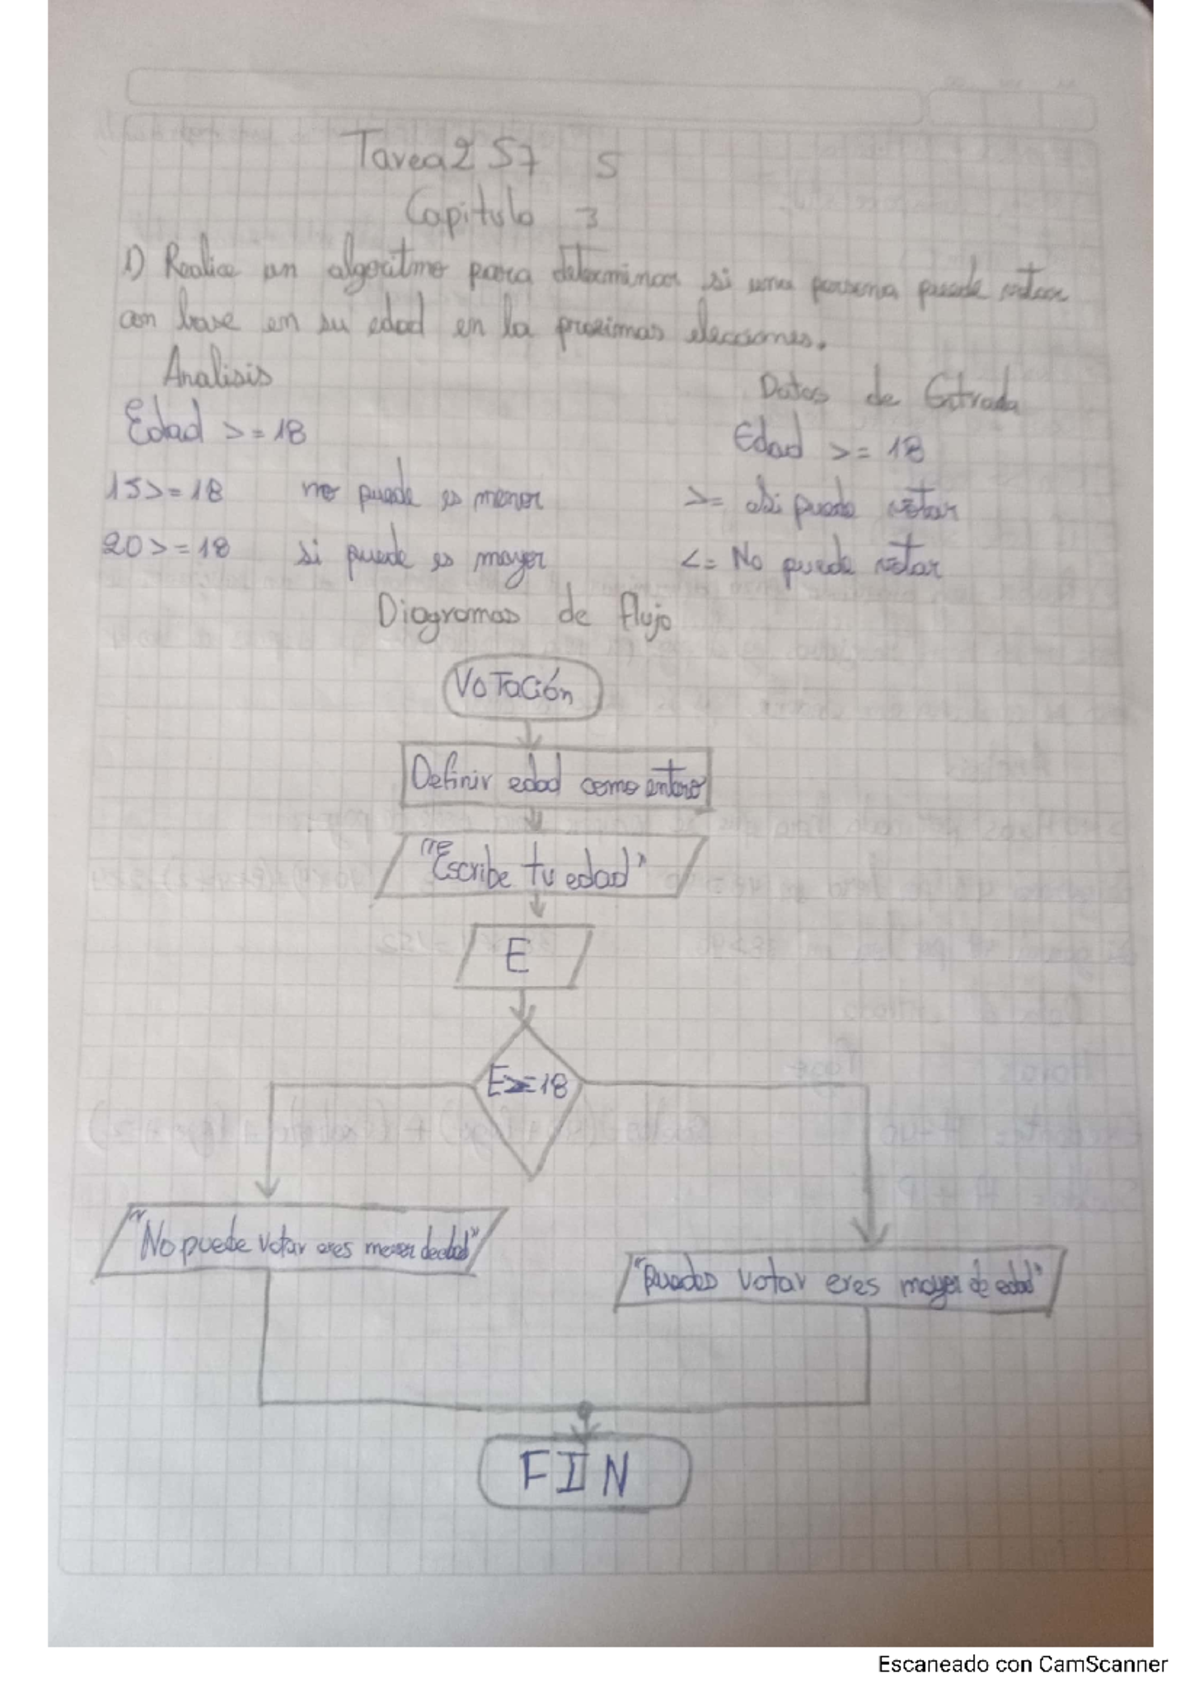 Tarea 2 S7 S
Capitulo 3
1) Realice un algoritmo para determinar si una persona puede votar
con base en su edad en la proximas elecciones.
Analisis
Datos de Entrada
Edad >= 18
Edad >= 18
15>=18 no puede es menor
>= Si puede votar
20>=18 si puede es mayor
<= No puede votar
Diagramas de flujo
VOTación
Definir edad como entero
"Escribe tu edad"
E
E>=18
"No puede votar eres menor de edad"
"puedes votar eres mayor de edad"
FIN
Escaneado con CamScanner